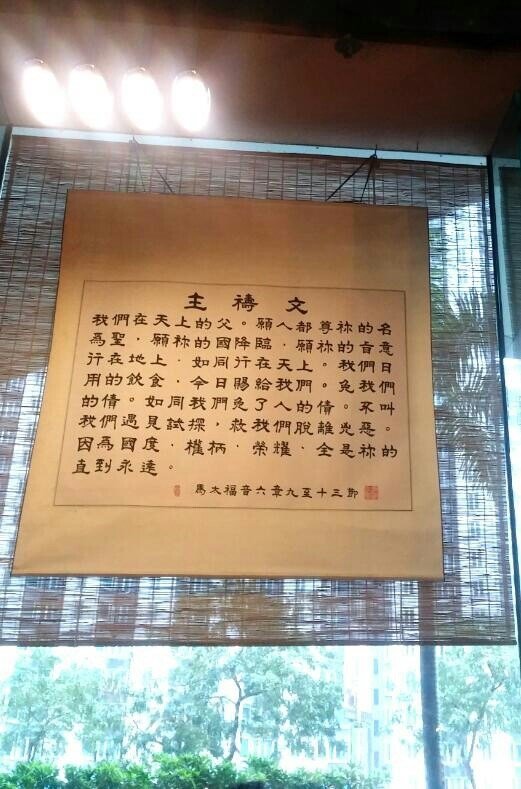 主禱文
我們在天上的父。願人都尊祢的名
為聖．願祢的國降臨．願祢的旨意
行在地上．如同行在天上。我們日
用的飲食．今日賜給我們。免我們
的債。如同我們免了人的債。不叫
我們遇見試探，救我們脫離兇惡。
因為國度．權柄．榮耀．全是祢的
直到永遠。
馬太福音六章九至十三節